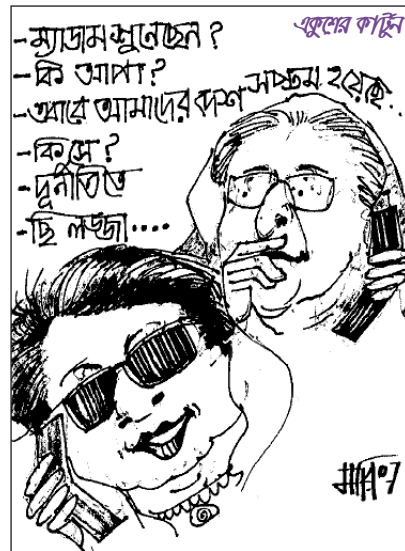 একুশের কার্টুন
-ম্যাডাম শুনেছেন ?
-কি আপা ?
-আরে আমাদের দেশ সপ্তম হয়েছে..
-কিসে ?
-দূর্নীতিতে
-ছি লজ্জা....